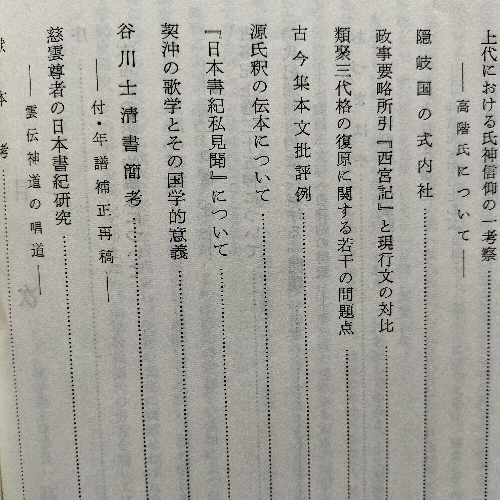 上代における氏神信仰の一考察
――高階氏について――
隠岐国の式内社
政事要略所引『西宮記』と現行文の対比
類聚三代格の復原に関する若干の問題点
古今集本文批評例
源氏釈の伝本について
『日本書紀私見聞』について
契沖の歌学とその国学的意義
谷川士清書簡考
――付・年譜補正再稿――
慈雲尊者の日本書紀研究
――雲伝神道の唱道――
本考